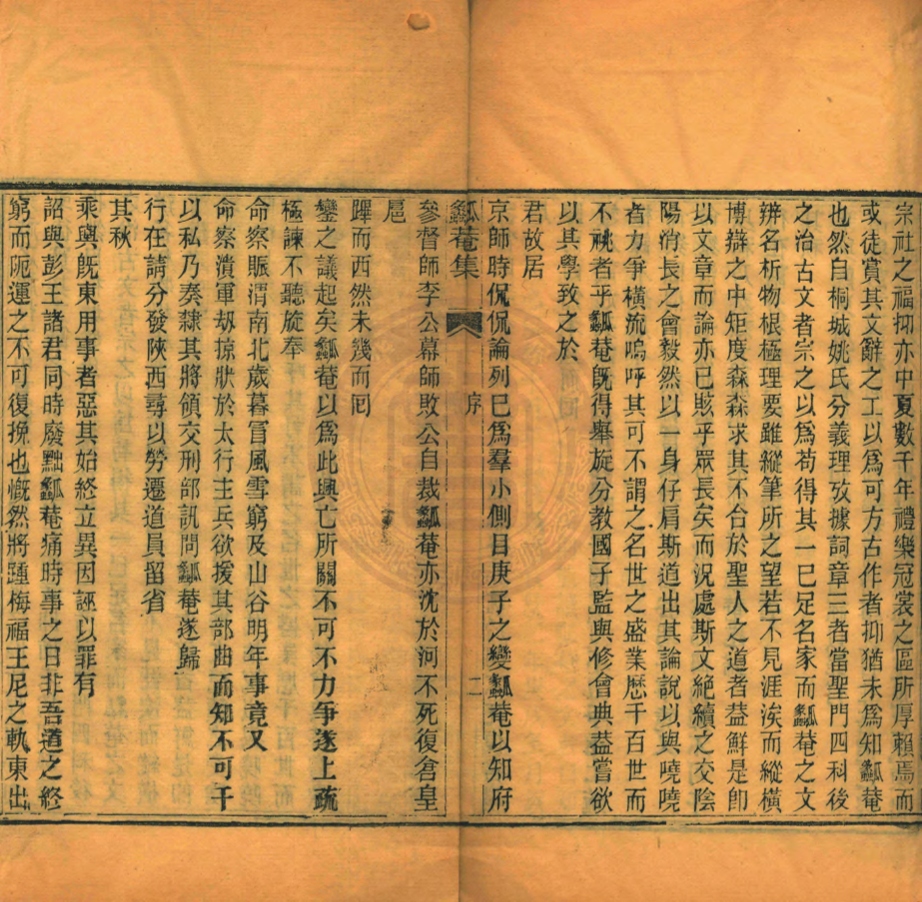 宗社之福抑亦中夏數千年禮樂冠裳之區所厚賴焉而
或徒賞其文辭之工以爲可方古作者抑猶未爲知瓥菴
也然自桐城姚氏分義理攷據詞章三者當聖門四科後
之治古文者宗之以爲苟得其一已足名家而瓥菴之文
辨名析物根極理要雖縱筆所之望若不見涯涘而縱橫
博辯之中矩度森森求其不合於聖人之道者葢鮮是卽
以文章而論亦已賅乎眾長矣而況處斯文絕續之交陰
陽消長之會毅然以一身仔肩斯道出其論說以與曉曉
者力爭橫流嗚呼其可不謂之名世之盛業厯千百世而
不祧者乎瓥菴旣得舉旋分教國子監與修會典葢嘗欲
以其學致之於
君故居
京師時侃侃論列已爲羣小側目庚子之變瓥菴以知府
瓥菴集
序
二
參督師李公幕師敗公自裁瓥菴亦沈於河不死復倉皇
扈
蹕而西然未幾而囘
鑾之議起矣瓥菴以爲此興亡所關不可不力爭遂上疏
極諫不聽旋奉
命察賑渭南北歲暮冒風雪窮及山谷明年事竟又
命察潰軍刼掠狀於太行主兵欲援其部曲而知不可干
以私乃奏隸其將領交刑部訊問瓥菴遂歸
行在請分發陝西尋以勞遷道員留省
其秋
乘輿旣東用事者惡其始終立異因誣以罪有
詔與彭王諸君同時廢黜瓥菴痛時事之日非吾道之終
窮而阨運之不可復挽也慨然將踵梅福王尼之軌東出